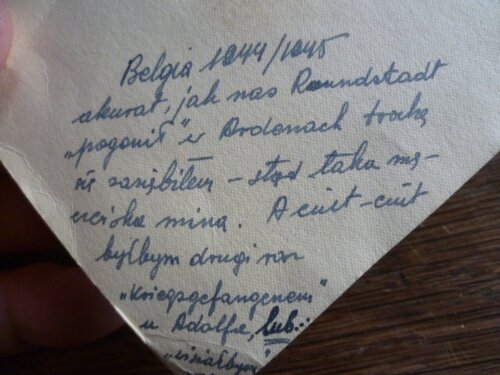 Belgia 1944/1945
akurat, jak nas Roundstadt
„pogonił” w Ardenach trochę
się zaziębiłem – stąd taka mę-
czeńska mina. A ciut-ciut
byłbym drugi raz
„Kriegsgefangenem”
u Adolfa, lub...